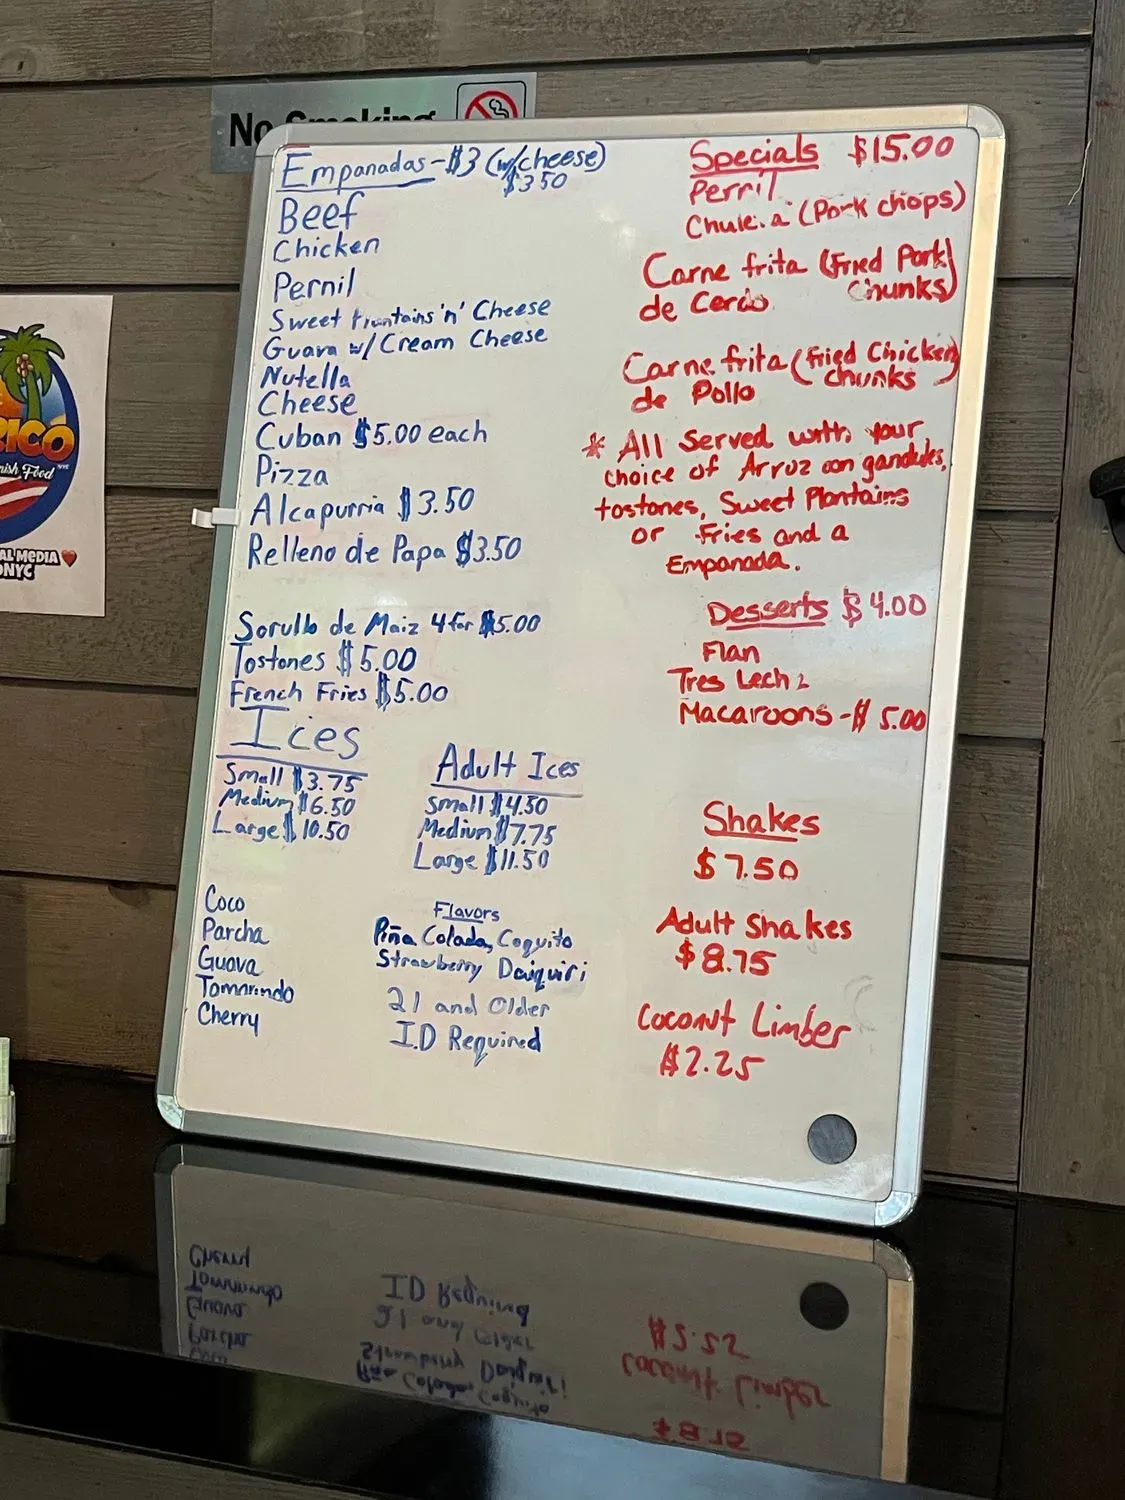 No Smoking
Empanadas - $3 (w/cheese)
$3.50
Beef
Chicken
Pernil
Sweet Plantains 'n' Cheese
Guava w/ Cream Cheese
Nutella
Cheese
Cuban $5.00 each
Pizza
Alcapurria $3.50
Relleno de Papa $3.50
Sorullo de Maiz 4 for $5.00
Tostones $5.00
French Fries $5.00
Ices
Small $3.75
Medium $6.50
Large $10.50
Coco
Parcha
Guava
Tamarindo
Cherry
Adult Ices
Small $4.50
Medium $7.75
Large $11.50
Flavors
Piña Colada, Coquito
Strawberry Daiquiri
21 and Older
I.D Required
Specials $15.00
Pernil
(Pork chops)
Carne frita (Fried Pork
de Cerdo Chunks)
Carne frita (Fried Chicken)
de Pollo chunks
* All Served with your
choice of Arroz con gandules,
tostones, Sweet Plantains
or Fries and a
Empanada.
Desserts $4.00
Flan
Tres Lech
Macaroons - $5.00
Shakes
$7.50
Adult Shakes
$8.75
Coconut Limber
$2.25
RICÓ
nish Food NYC
AL MEDIA
ONYC